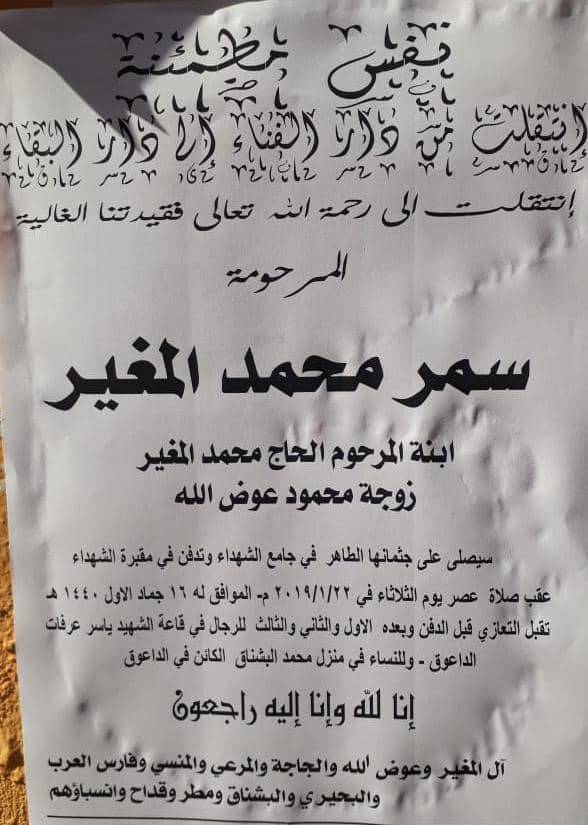 نفس مطمئنة
إنتقلت من دار الفناء إلى دار البقاء
إنتقلت الى رحمة الله تعالى فقيدتنا الغالية
المرحومة
سمر محمد المغير
ابنة المرحوم الحاج محمد المغير
زوجة محمود عوض الله
سيصلى على جثمانها الطاهر في جامع الشهداء وتدفن في مقبرة الشهداء
عقب صلاة عصر يوم الثلاثاء في ٢٠١٩/١/٢٢ م- الموافق له ١٦ جماد الاول ١٤٤٠ هـ
تقبل التعازي قبل الدفن وبعده الاول والثاني والثالث للرجال في قاعة الشهيد ياسر عرفات
الداعوق - وللنساء في منزل محمد البشناق الكائن في الداعوق
إنا لله وإنا إليه راجعون
آل المغير وعوض الله والحاجة والمرعي والمنسي وفارس العرب
والبحيري والبشناق ومطر وقداح وانسباؤهم